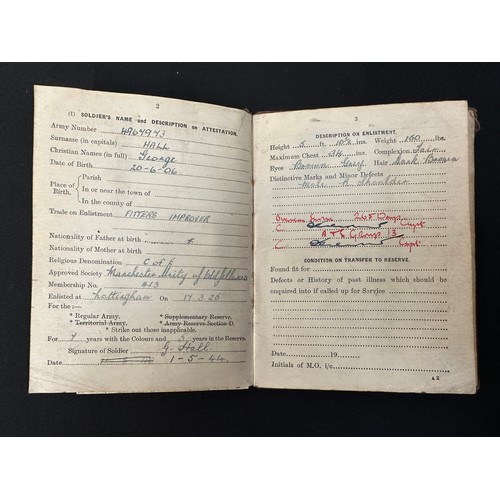 2
(I) SOLDIER'S NAME and DESCRIPTION on ATTESTATION.
Army Number 4964943
Surname (in capitals) HALL
Christian Names (in full) George
Date of Birth 20-6-06
Place of Birth.
Parish
In or near the town of
In the county of
Trade on Enlistment FITTERS IMPROVER
Nationality of Father at birth
Nationality of Mother at birth
Religious Denomination C of E
Approved Society Manchester Unity of Oddfellows
Membership No. 413
Enlisted at Nottingham On 17.3.26
For the :—
* Regular Army. * Supplementary Reserve.
* Territorial Army. * Army Reserve Section D.
* Strike out those inapplicable.
For 7 years with the Colours and 5 years in the Reserve.
Signature of Soldier G. Hall
Date 1-5-44
3
DESCRIPTION ON ENLISTMENT.
Height 5 ft. 10½ ins. Weight 160 lbs.
Maximum Chest 34 ins. Complexion Fair
Eyes Brown Grey Hair Dark Brown
Distinctive Marks and Minor Defects
Mole R Shoulder
268 Days
Capt
Group 3
Capt
CONDITION ON TRANSFER TO RESERVE.
Found fit for
Defects or History of past illness which should
be enquired into if called up for Service
Date 19
Initials of M.O. i/c
A 2